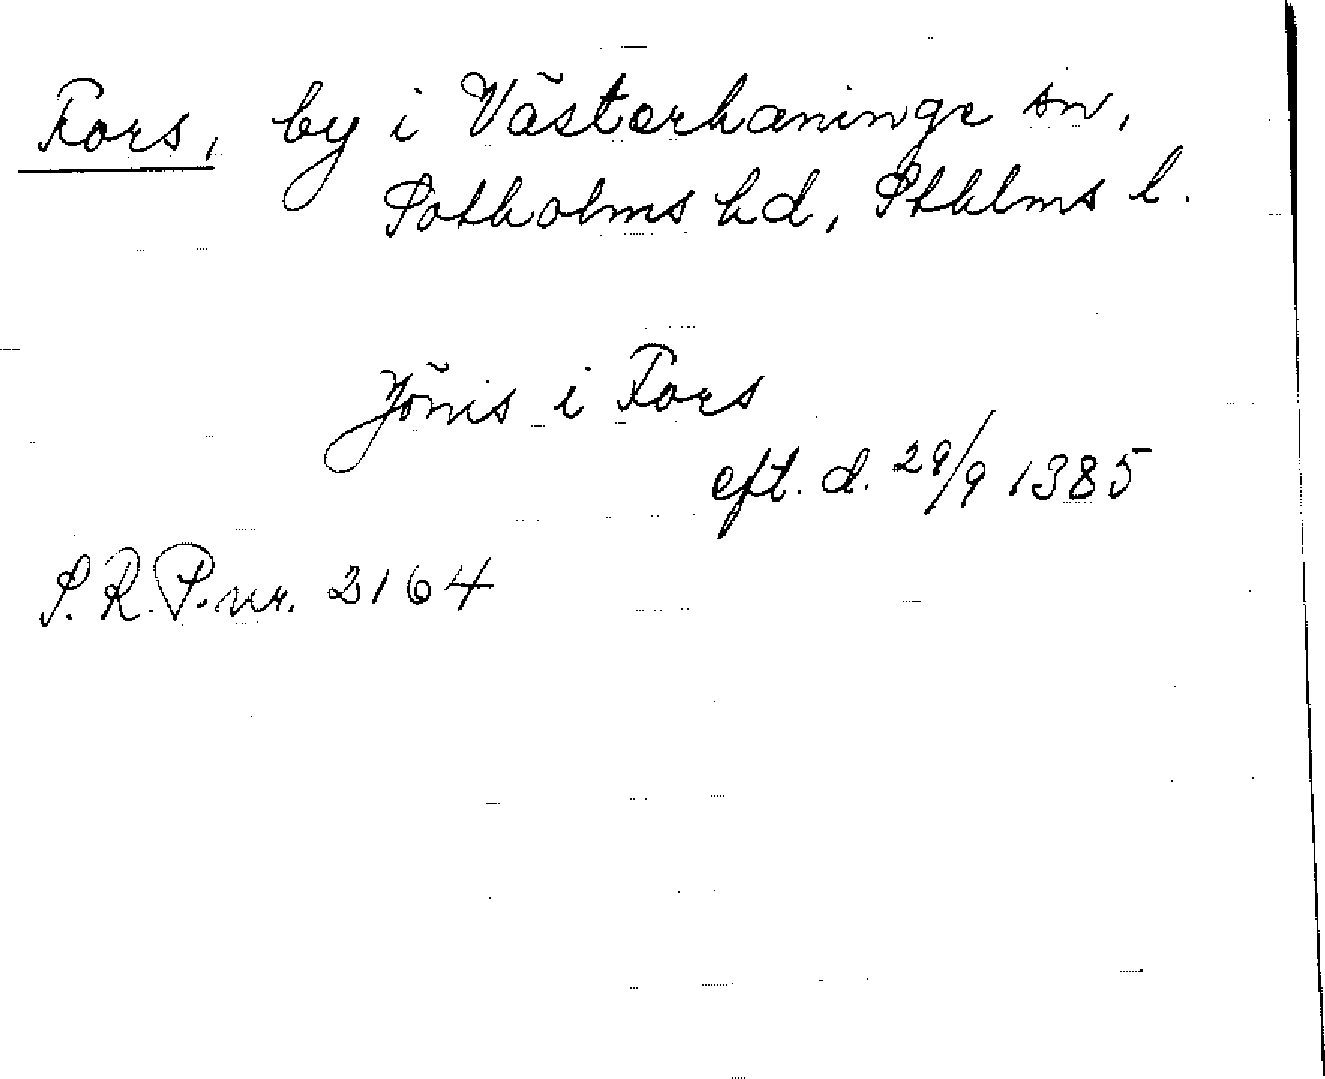 Fors, by i Västerhaninge sn,
Sotholms hd, Sthlms l.
Jönis i Fors
eft. d. 29/9 1385
S.R.P.nr. 2164